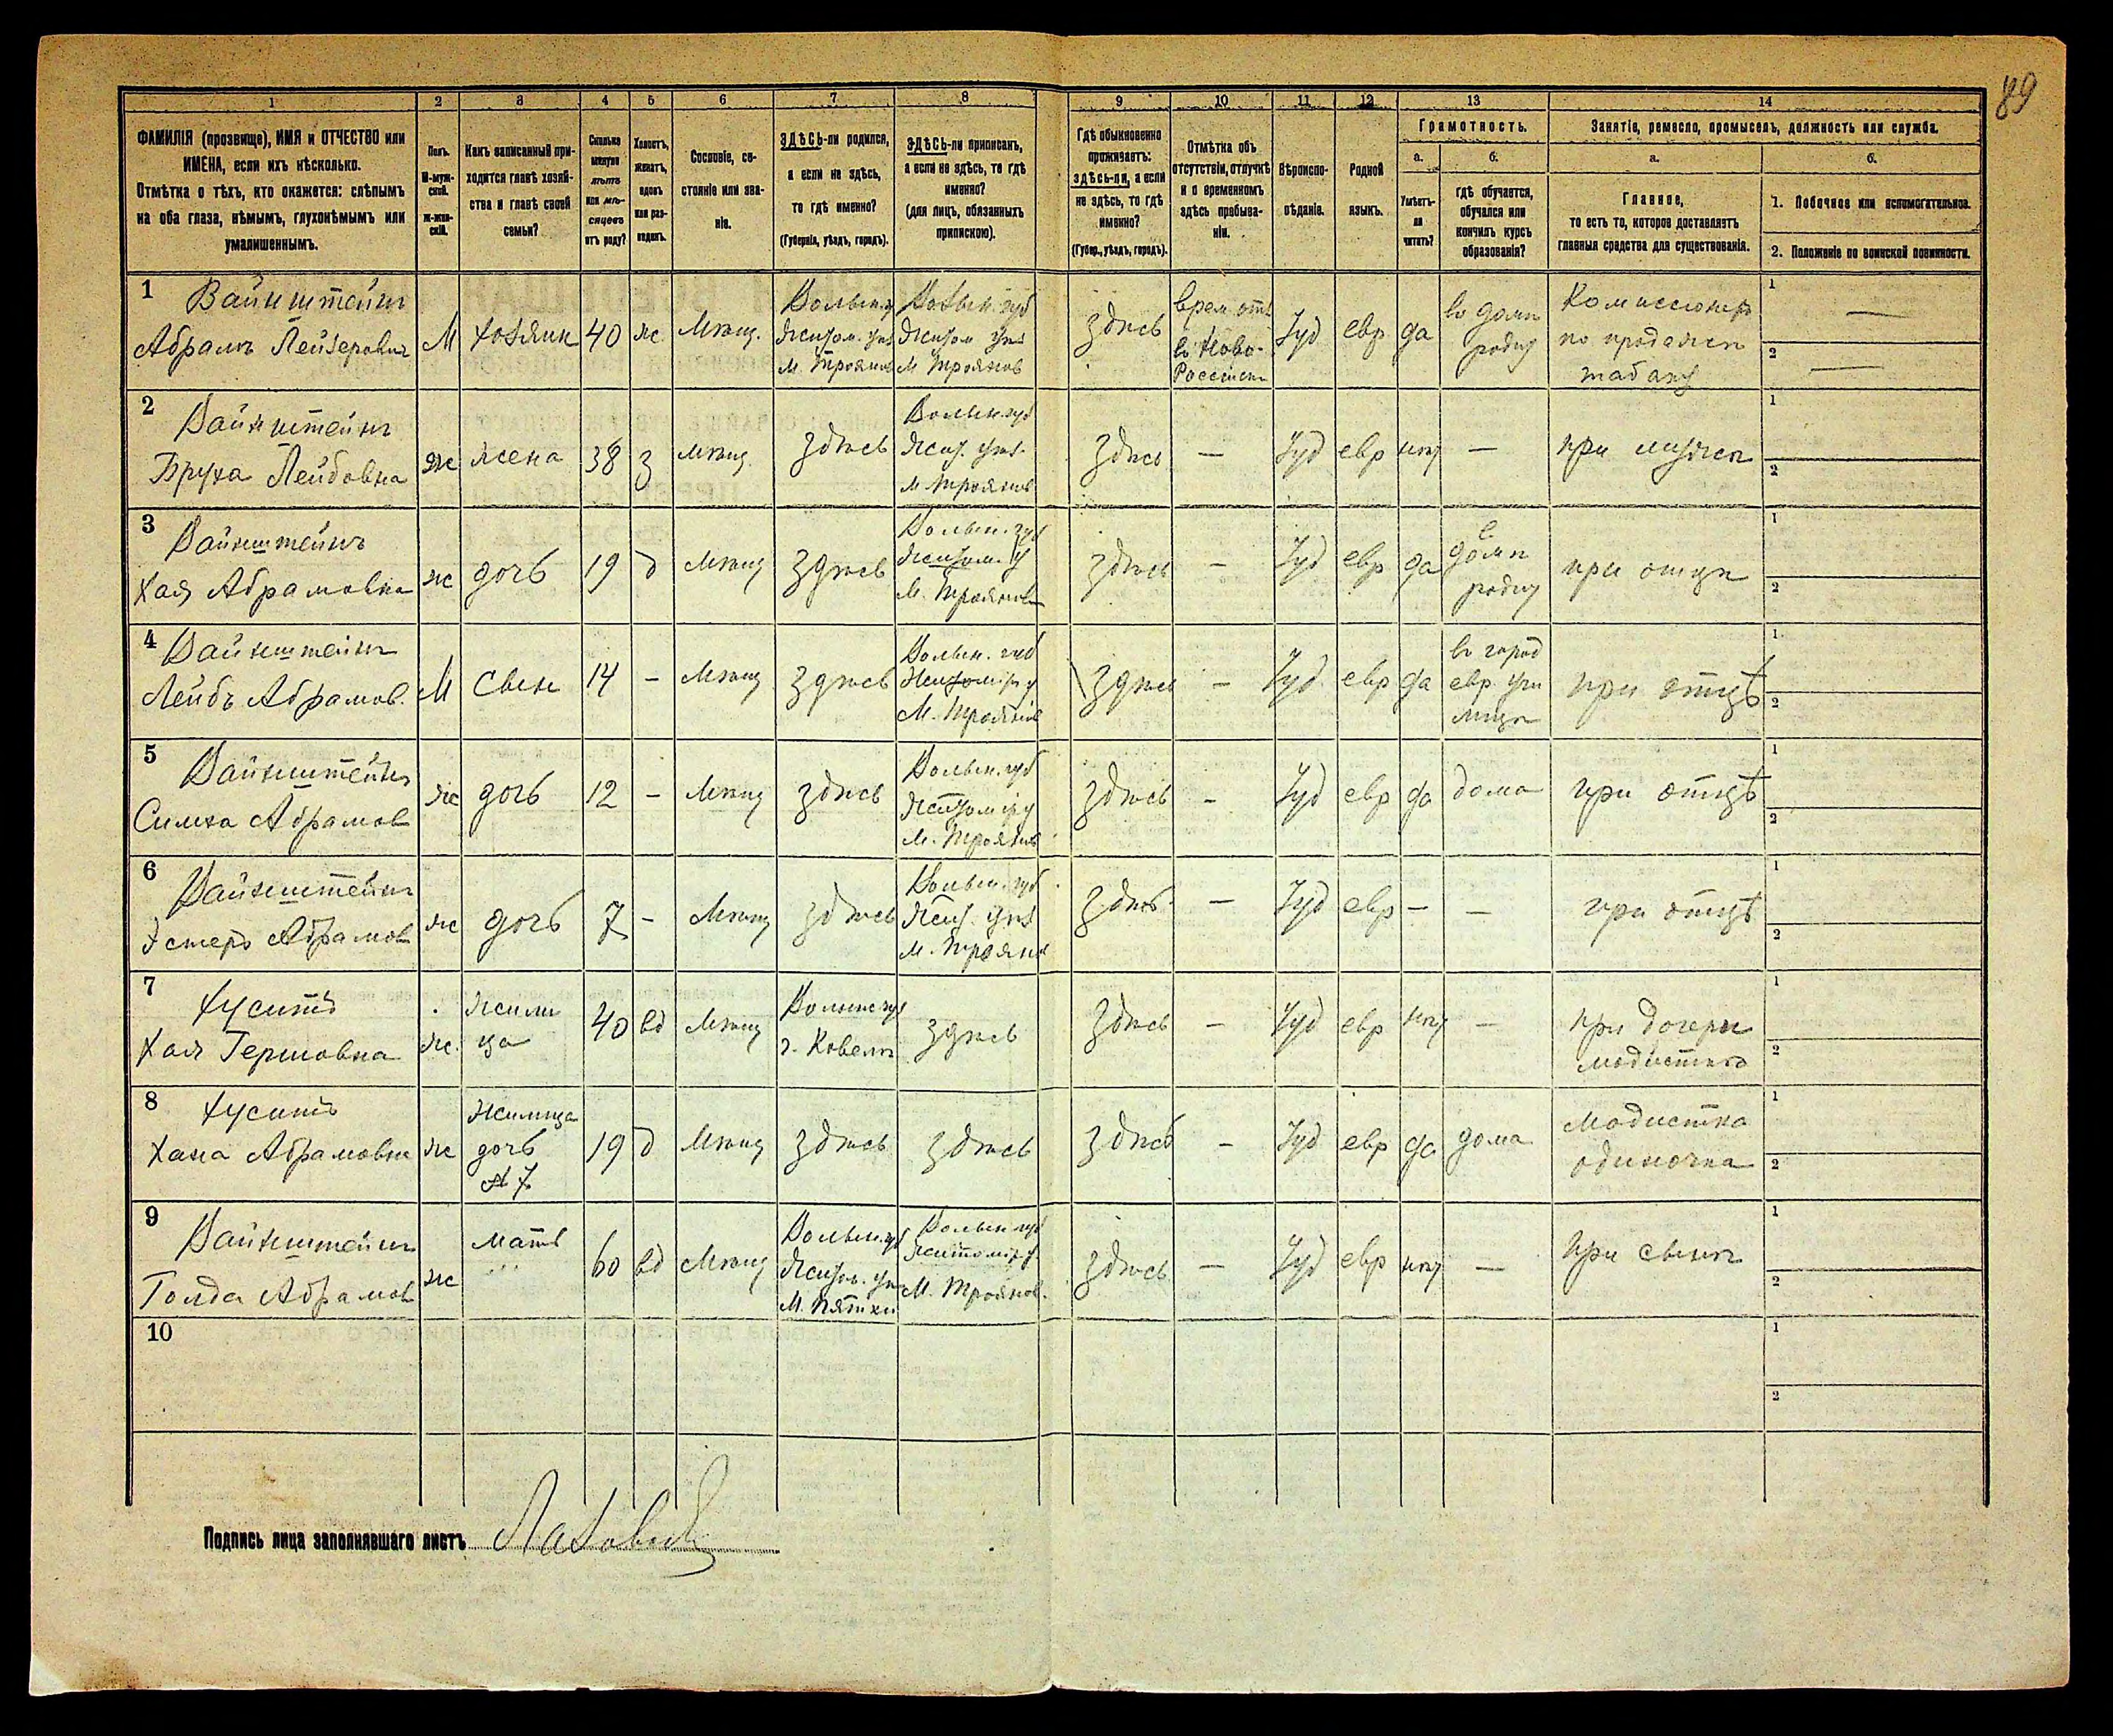 89
1 2 3 4 5 6 7 8 9 10 11 12 13 14
ФАМИЛІЯ (прозвище), ИМЯ и ОТЧЕСТВО или
ИМЕНА, если ихъ нѣсколько.
Отмѣтка о тѣхъ, кто окажется: слѣпымъ
на оба глаза, нѣмымъ, глухонѣмымъ или
умалишеннымъ.
Полъ.
М-муж-
ской.
ж-жен-
скій.
Какъ записанный при-
ходится главѣ хозяй-
ства и главѣ своей
семьи?
Сколько
минуло
лѣтъ
или мѣ-
сяцевъ
отъ роду?
Холостъ,
женатъ,
вдовъ
или раз-
веденъ.
Сословіе, со-
стояніе или зва-
ніе.
ЗДѢСЬ-ли родился,
а если не здѣсь,
то гдѣ именно?
(Губернія, уѣздъ, городъ).
ЗДѢСЬ-ли приписанъ,
а если не здѣсь, то гдѣ
именно?
(для лицъ, обязанныхъ
припискою).
Гдѣ обыкновенно
проживаетъ:
здѣсь-ли, а если
не здѣсь, то гдѣ
именно?
(Губер., уѣздъ, городъ).
Отмѣтка объ
отсутствіи, отлучкѣ
и о временномъ
здѣсь пребыва-
ніи.
Вѣроиспо-
вѣданіе.
Родной
языкъ.
Грамотность.
а.
Умѣетъ-
ли
читать?
б.
гдѣ обучается,
обучался или
кончилъ курсъ
образованія?
Занятіе, ремесло, промыселъ, должность или служба.
а.
Главное,
то есть то, которое доставляетъ
главныя средства для существованія.
б.
1. Побочное или вспомогательное.
2. Положеніе по воинской повинности.
1
Вайнштейнъ
Абрамъ Лейзеровичъ
М
хозяинъ
40
ж
Мѣщ.
Волын. г
Житом. уѣз
М. Трояновъ
Волын. губ
Житом уѣз
М Трояновъ
здѣсь
врем. отс
въ Ново-
Россійскѣ
Іуд
евр
да
въ домѣ
родит
Комиссіонеръ
по продажѣ
табаку
1 —
2 —
2
Вайнштейнъ
Бруха Лейбовна
Ж
жена
38
З
Мѣщ.
здѣсь
Волын. губ
Жит. уѣз.
М Трояновъ
здѣсь
—
Іуд
евр
нѣт
—
при мужѣ
1
2
3
Вайнштейнъ
Хая Абрамовна
ж
дочь
19
д
Мѣщ
здѣсь
Волын. губ
Житом. у
М. Трояновъ
здѣсь
—
Іуд
евр
да
въ
домѣ
родит
при отцѣ
1
2
4
Вайнштейнъ
Лейбъ Абрамов.
М
Сынъ
14
—
Мѣщ
здѣсь
Волын. губ
Житомір у
М. Трояновъ
здѣсь
—
Іуд
евр
да
въ город
евр. учи
лищѣ
при отцѣ
1
2
5
Вайнштейнъ
Симха Абрамов
ж
дочь
12
—
Мѣщ
здѣсь
Волын. губ
Житомір у
М. Трояновъ
здѣсь
—
Іуд
евр
да
дома
при отцѣ
1
2
6
Вайнштейнъ
Эстеръ Абрамов
ж
дочь
7
—
Мѣщ
здѣсь
Волын. губ
Жит. уѣз
М. Троянов
здѣсь
—
Іуд
евр
—
—
при отцѣ
1
2
7
Хуситъ
Хая Гершовна
ж.
Жили
ца
40
вд
Мѣщ
Волынс губ
г. Ковель
здѣсь
здѣсь
—
Іуд
евр
нѣт
—
при дочери
модисткѣ
1
2
8
Хуситъ
Хана Абрамовна
ж
Жилица
дочь
№ 7
19
д
Мѣщ
здѣсь
здѣсь
здѣсь
—
Іуд
евр
да
дома
Модистка
одиночка
1
2
9
Вайнштейнъ
Голда Абрамов
ж
мать
60
вд
Мѣщ
Волын. губ
Житом. уѣз
М. Пятки
Волын губ
Житомір у.
М. Троянов.
здѣсь
—
Іуд
евр
нѣт
—
При сынѣ
1
2
10
1
2
Подпись лица заполнявшаго листъ